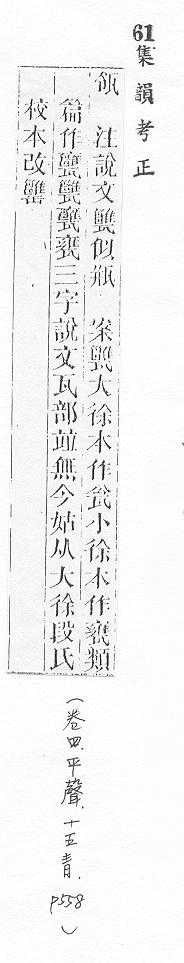 61集韻考正
瓴 注說文似瓶 案大徐本作瓮小徐本作甕類
篇作三字說文瓦部並無今姑从大徐段氏
校本改罌
（卷四．平聲．十五青．p558）